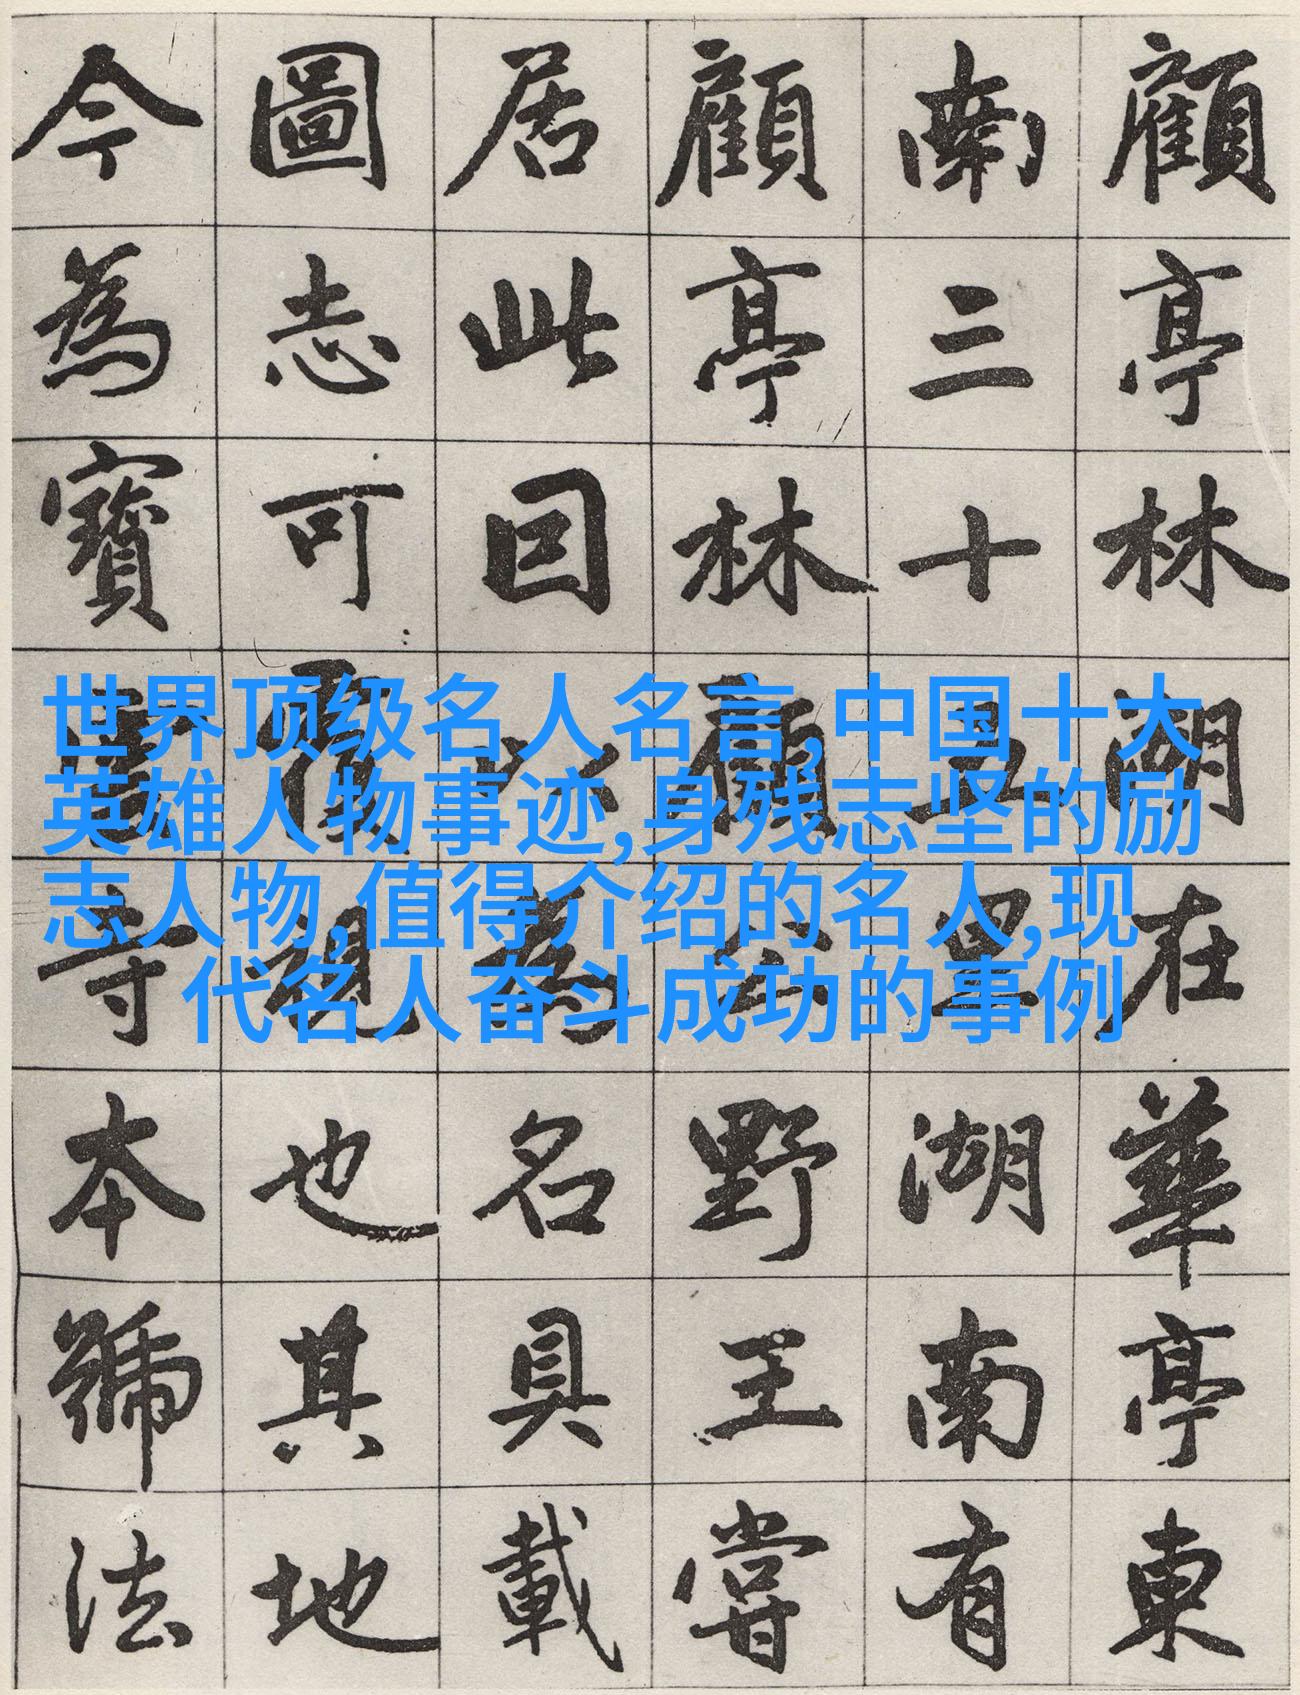 顧亭林湖在華亭東
南三十五里湖南有
顧亭林顧公野王嘗
居此因以為名具載
圖志可覆視也其地
今為寶雲寺本號法
世界顶级名人名言,中国十大
英雄人物事迹,身残志坚的励
志人物,值得介绍的名人,现
代名人奋斗成功的事例